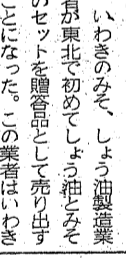 いわきのみそ、しょう油製造業
者が東北で初めてしょう油とみそ
のセットを贈答品として売り出す
ことになった。この業者はいわき